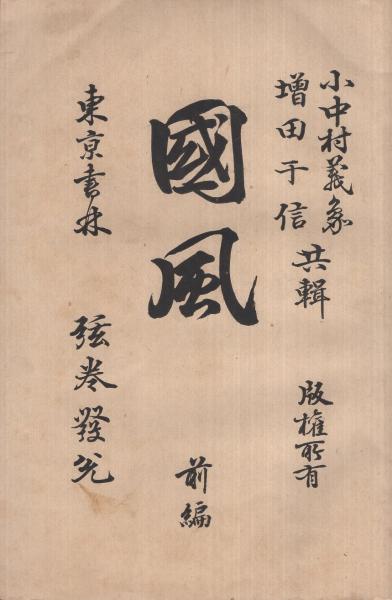 小中村義象
増田于信 共輯
版権所有
國風
前編
東京書林 弦巻發兌